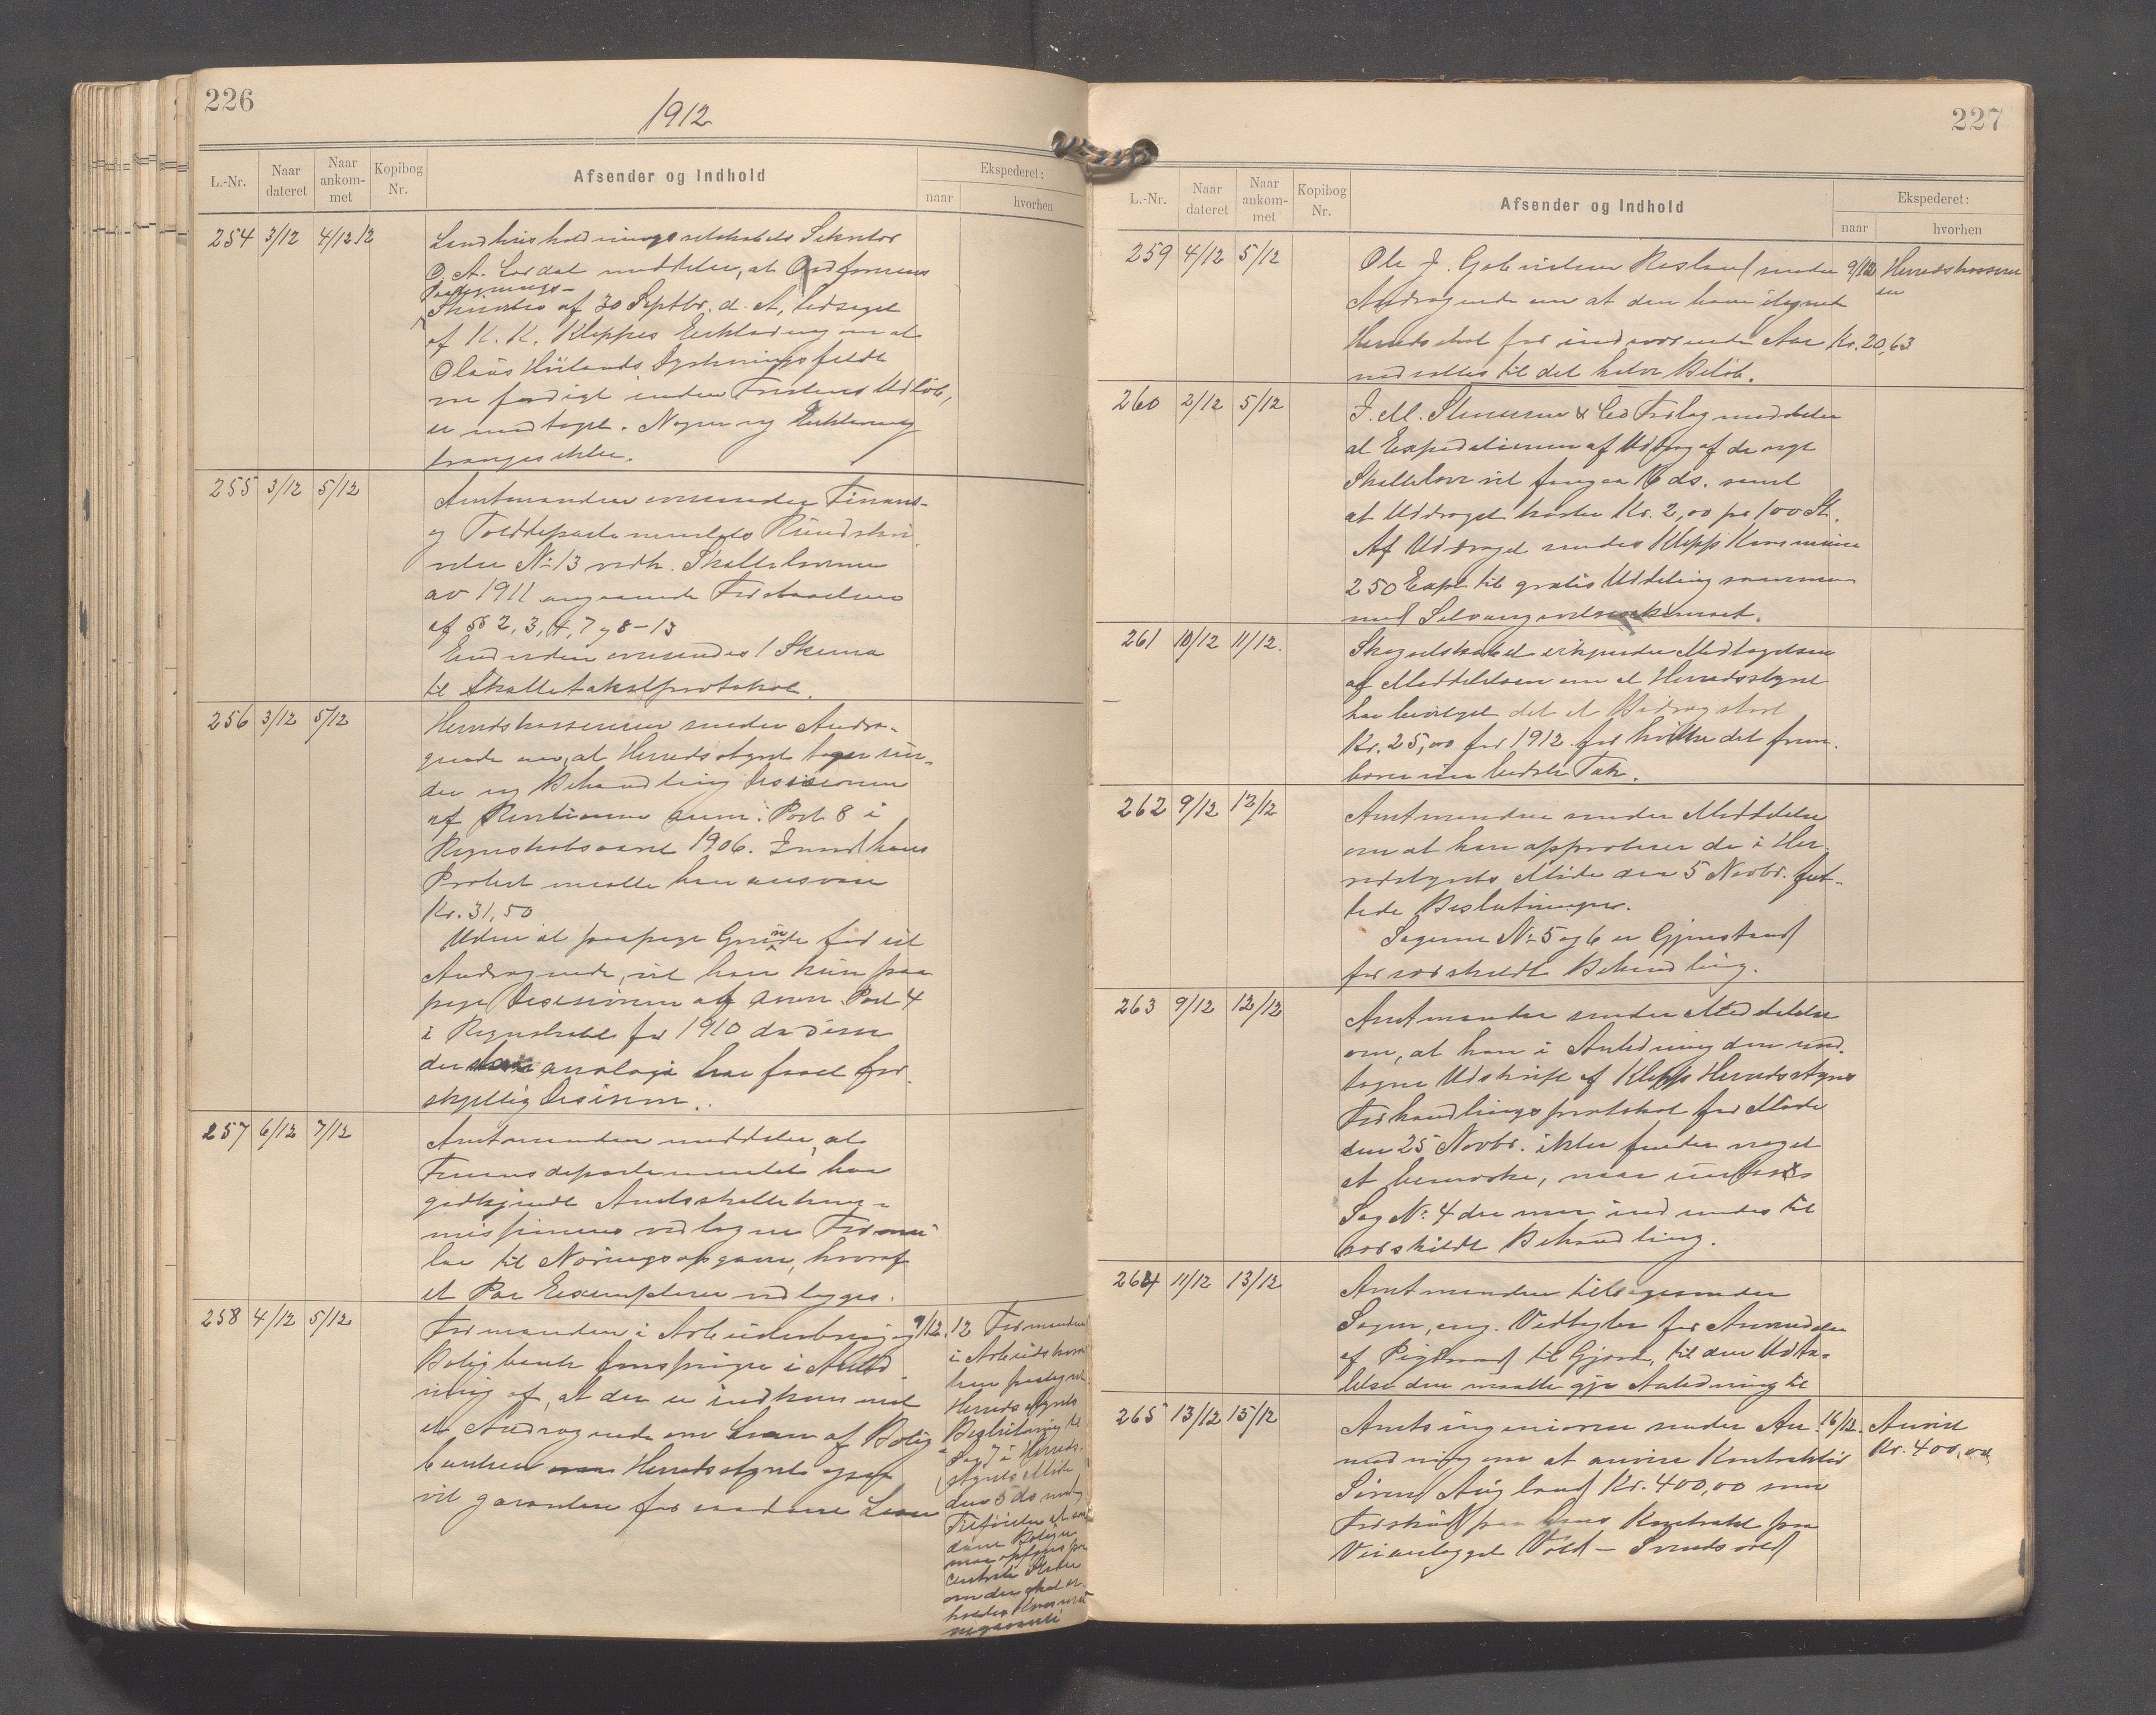 226
1912
L.-Nr.
Naar dateret
Naar ankom-met
Kopibog Nr.
Afsender og Indhold
Ekspederet:
naar
hvorhen
254 3/12 4/12 12
Landhusholdningsselskabets Sekretær
O. A. Lordal meddeler, at Ordførerens
Paategnings-
Skrivelse af 30 Septbr. d. A., ledsaget
af K. K. Kleppes Erklæring om at
Olaus Hålands Dyrkningsfeldt
var færdigt inden Fristens Udløb,
er modtaget. Nogen ny Erklæring
trænges ikke.
255 3/12 5/12
Amtmanden oversender Finans-
og Tolddepartementets Rundskri-
velse No 13 vedk. Skatteloven
av 1911 angaaende Forstaaelsen
af §§ 2, 3, 4, 7 og 8-13
Endvidere oversendes 1 Skema
til Skattetakstprotokol.
256 3/12 5/12
Herredskassereren sender Andra-
gende om, at Herredsstyret tager un-
der ny Behandling Desisionen
af Revisionens anm. Post 8 i
Regnskabsaaret 1906. Imod hans
Protest maatte han ansvare
Kr. 31,50
Uden at paapege Grunde for sit
Andragende, vil han kun paa
pege Desisionen af anm. Post 4
i Regnskabet for 1910 da disse
der analogi har faaet for-
skjellig Desision.
257 6/12 7/12
Amtmanden meddeler, at
Finansdepartementet har
godkjendt Amtsskattekom-
missionens vedtagne Formu-
lar til Næringsopgaver, hvoraf
et Par Exemplarer vedlægges.
258 4/12 5/12
Formanden i Arbeiderbrug og
Boligbank forespørger i Anled
ning af, at der er indkommet
et Andragende om Laan af Bolig
banken om Herredsstyret ogsaa
vil garantere for saadanne Laan
9/12.12 Formanden
i Arbeids
Herredsstyrets
Beslutning til
Sag 7 i Herreds-
styrets Møde
den 5 ds med
Tilføielse at saa
danne Boliger
maa opføres paa
centrale Steder
om der skal er-
holdes Kommu
negaranti
227
L.-Nr.
Naar dateret
Naar ankom-met
Kopibog Nr.
Afsender og Indhold
Ekspederet:
naar
hvorhen
259 4/12 5/12
Ole J. Gabrielsen Røsland sender
Andragende om at den ham ilignede
Herredsskat for indeværende Aar
nedsættes til det halve Beløb.
9/12 Herredskasserer
en
Kr. 20,63
260 2/12 5/12
J. M. Stenersen & Co Forlag meddeler
at Expeditionen af Udtog af de nye
Skattelove vil foregaa 16 ds. samt
at Uddraget koster Kr. 2,00 pr 100 St.
Af Uddraget sendes Klepp Kommune
250 Expl. til gratis Uddeling sammen
med Selvangivelsesskemaet.
261 10/12 11/12.
Skogselskabet erkjender Modtagelsen
af Meddelelsen om at Herredsstyret
har bevilget det et Bidrag stort
Kr. 25,00 for 1912. for hvilke det frem-
bærer sin bedste Tak.
262 9/12 12/12
Amtmanden sender Meddelelse
om at han approberer de i Her-
redstyrets Møde den 5 Novbr. fat-
tede Beslutninger.
Sagerne No 5 og 6 er Gjenstand
for særskildt Behandling.
263 9/12 12/12
Amtmanden sender Meddelelse
om, at han i Anledning den mod-
tagne Udskrift af Klepp Herredsstyres
Forhandlingsprotokol for Møde
den 25 Novbr. ikke finder noget
at bemærke, naar undtages
Sag No 4 der maa indsendes til
særskildt Behandling.
264 11/12 13/12
Amtmanden tilbagesender
Sagen, ang. Vedtægter for Anvendelse
af Pigtraad til Gjærde, til den Udta-
lelse den maatte gje Anledning til
265 13/12 15/12
Amtsingeniøren sender An-
modning om at anvise Kontraktør
Sivert Auglend Kr. 400,00 som
Forskud paa hans Kontrakt paa
Veianlægget Vold -
16/12. Anvist
Kr. 400,00